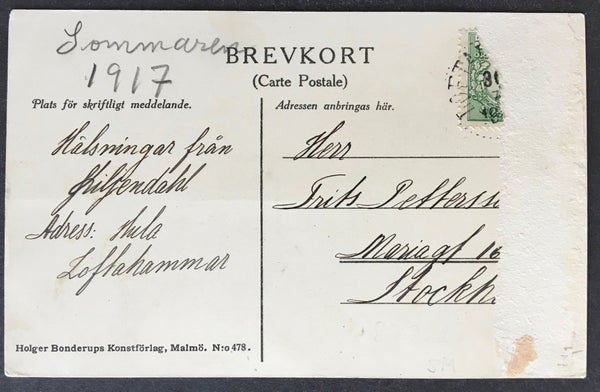 Sommaren
1917
BREVKORT
(Carte Postale)
Plats för skriftligt meddelande.
Adressen anbringas här.
Hälsningar från
Liljendahl
Adress: Hula
Loftahammar
Herr
Frits Petterss
Mariagt 16
Stockh
Holger Bonderups Konstförlag, Malmö. N:o 478.